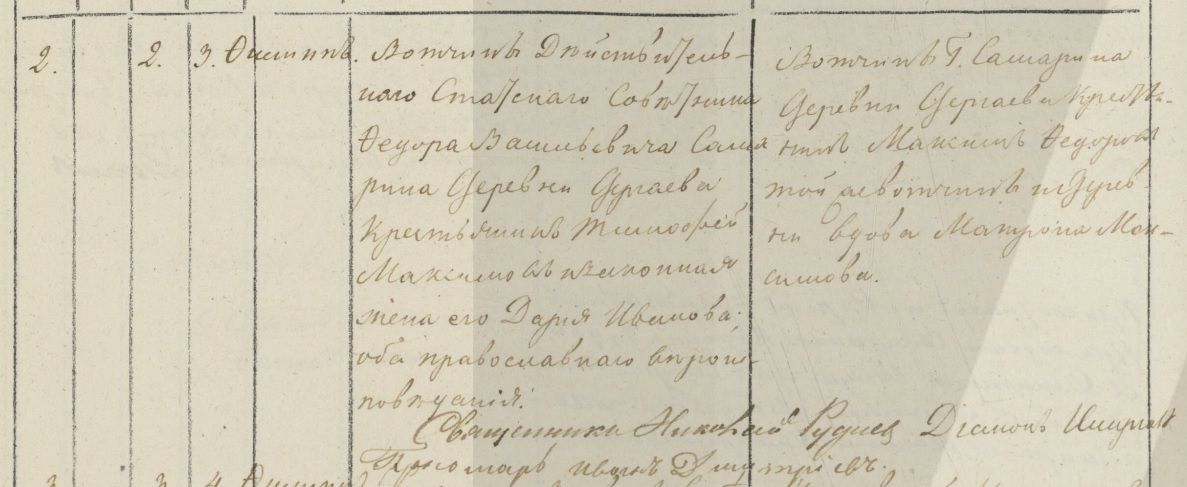 2. 2. 3. Филипъ. Вотчины Дѣйствитель-
наго Статскаго Совѣтника
Федора Васильевича Сама
рина Деревни Сергаева
Крестьянинъ Тимофей
Максимовъ и законная
жена его Дарія Иванова;
оба православнаго вѣрои-
повѣданія.
Вотчины Г. Самарина
Деревни Сергаева Кресть-
нинъ Максимъ Федоровъ
той же вотчины и дерев-
ни вдова Матрона Мак-
симова.
Священникъ Николай Рудневъ Діаконъ
Пономарь Иванъ Димитріевъ.
3. 3. 4. Филипъ